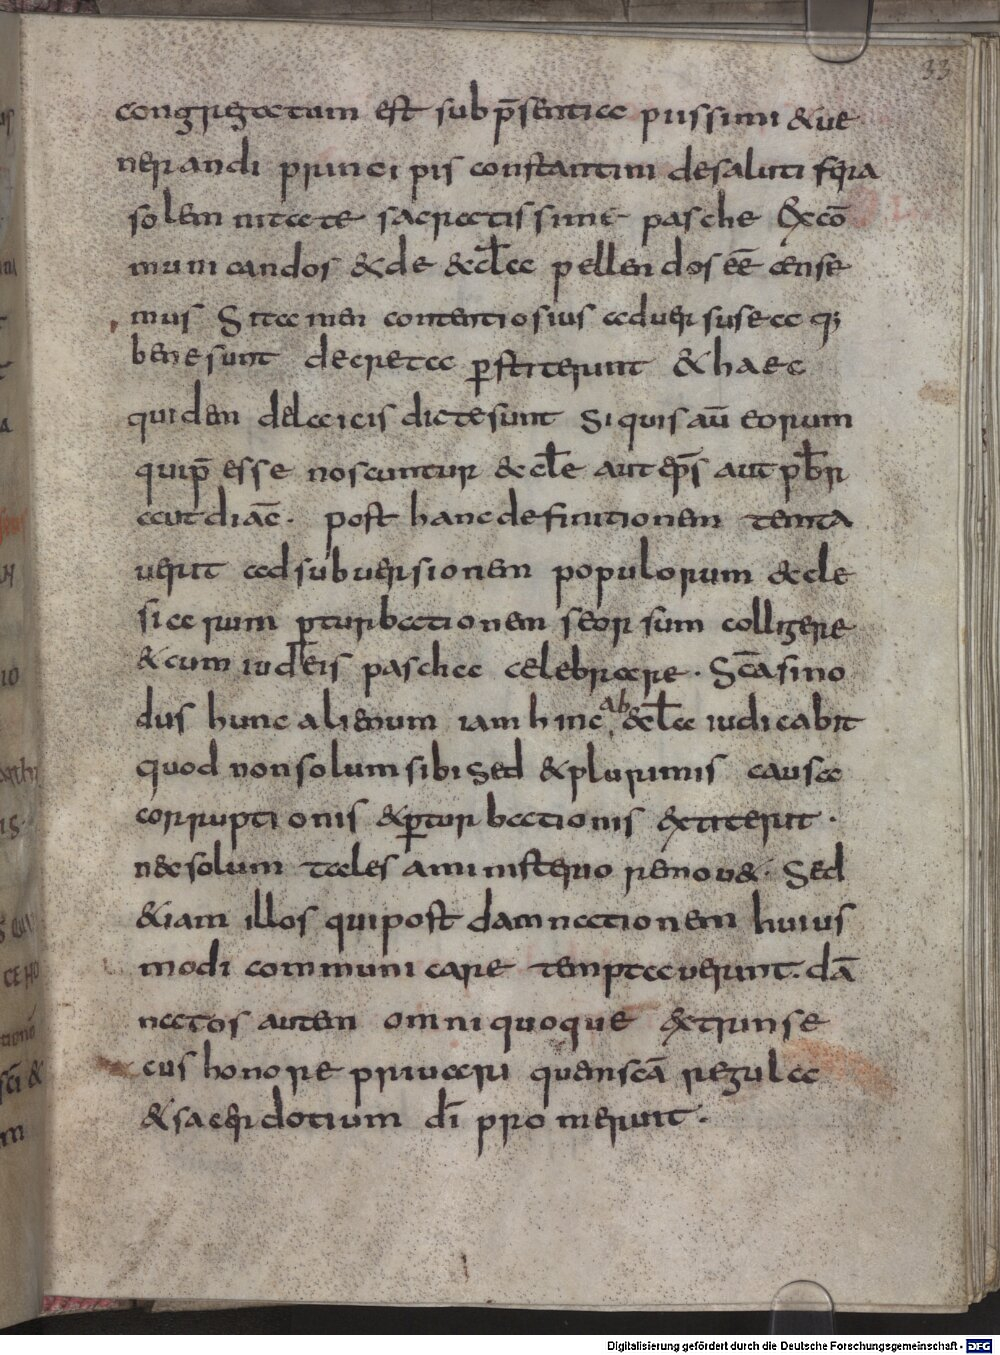 33
congregatum est sub p̄sentia piissimi & ue
nerandi principis constantini de salutifera
solemnitate sacratissime pasche excō
municandos & de &cl̄a pellendos eē cense
mus Si tamen contentiosius aduersus ea q;
bene sunt decreta ꝑstiterunt & haec
quidem de laicis dicta sunt Si quis aū eorum
qui p̄esse noscuntur &cl̄e aut ep̄s aut pb̄r
aut diac̄. post hanc definitionem temta
uerit ad subuersionem populorum &cle
siarum ꝑturbationem seorsum colligere
& cum iudeis pascha celebrare. Sc̄a sino
dus hunc alienum iam hinc ab &cl̄a iudicabit
quod non solum sibi Sed & plurimis causa
corruptionis & ꝑturbationis extiterit.
nec solum tales a ministerio remou&. Sed
&iam illos qui post damnationem huius
modi communicare temptauerint. dā
natos autem omni quoque extrinse
cus honore priuari quem scā regula
& sacerdotium dī promerunt.
Digitalisierung gefördert durch die Deutsche Forschungsgemeinschaft - DFG